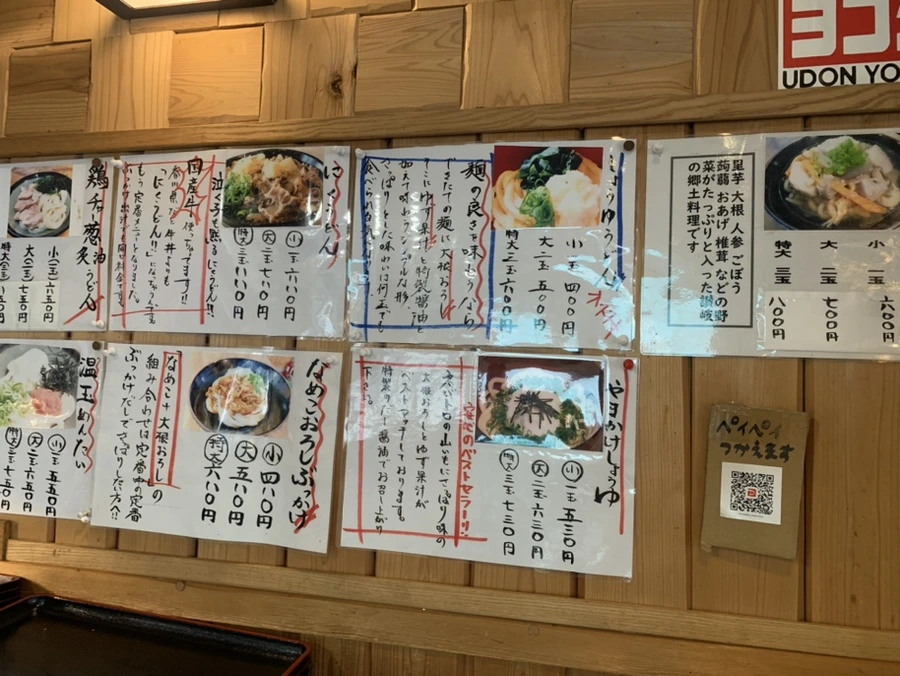 UDON YO
鶏チャー葱油
炙うどん
小(一玉)五五〇円
大(二玉)六五〇円
特大(三玉)七五〇円
にくうどん
泣く子も黙るにくうどん!!
国産牛使ってます!!
香川県だと牛丼よりも
「にくうどん!!」
もう定番メニューとなりました。
小 一玉 六八〇円
大 二玉 七八〇円
特大 三玉
しょうゆうどん
麺の良さを味わうなら
できたての麺に大根おろし
そこにゆず果汁と特製醤油と
加えて味わうシンプルな形
さっぱりとした味わいは何玉でも
小 一玉 四〇〇円
大 二玉 五〇〇円
特大 三玉 六〇〇円
里芋 大根 人参 ごぼう
蒟蒻 おあげ 椎茸 などの野
菜がたっぷりと入った讃岐
の郷土料理です
小 一玉 六〇〇円
大 二玉 七〇〇円
特大 三玉 八〇〇円
温玉めんたい
小 一玉 五五〇円
大 二玉 六五〇円
特大 三玉 七五〇円
なめこおろしぶっかけ
なめこ+大根おろしの
組み合わせは定番中の定番
ぶっかけだしでさっぱりしたい方へ!!
小 四八〇円
大 五八〇円
特大 六八〇円
やまかけしょうゆ
安定のベストセラー!!
ねばり名の山いもにさっぱり味の
大根おろしとゆず果汁が
ベストマッチしております。
特製のだし醤油でお召し上がり
下さい。
小 一玉 五三〇円
大 二玉 六三〇円
特大 三玉 七三〇円
ペイペイ
つかえます